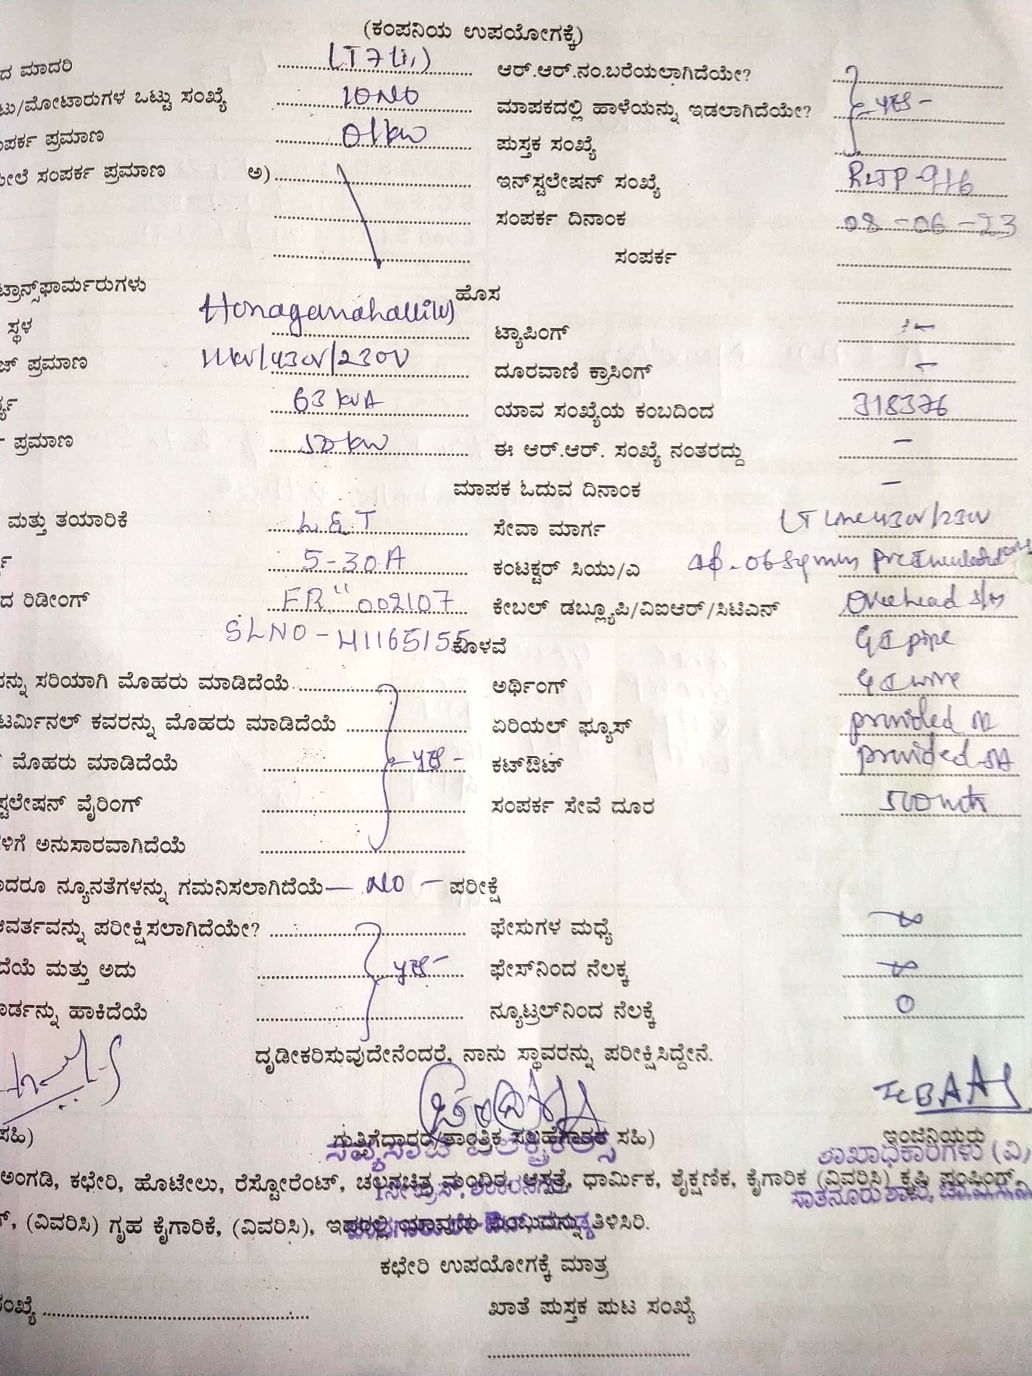 (ಕಂಪನಿಯ ಉಪಯೋಗಕ್ಕೆ)
ದ ಮಾದರಿ LT 7 (i) ಆರ್.ಆರ್.ನಂ.ಬರೆಯಲಾಗಿದೆಯೇ?
ಟು/ಮೋಟಾರುಗಳ ಒಟ್ಟು ಸಂಖ್ಯೆ 10NO ಮಾಪಕದಲ್ಲಿ ಹಾಳೆಯನ್ನು ಇಡಲಾಗಿದೆಯೇ? yes -
ಪರ್ಕ ಪ್ರಮಾಣ 01kw ಪುಸ್ತಕ ಸಂಖ್ಯೆ
ಮೇಲೆ ಸಂಪರ್ಕ ಪ್ರಮಾಣ ಅ) ಇನ್‌ಸ್ಟಲೇಷನ್ ಸಂಖ್ಯೆ
ಸಂಪರ್ಕ ದಿನಾಂಕ 08-06-23
ಸಂಪರ್ಕ
ಟ್ರಾನ್ಸ್‌ಫಾರ್ಮರುಗಳು ಹೊಸ
ಸ್ಥಳ ಟ್ಯಾಪಿಂಗ್ -
ಜ್ ಪ್ರಮಾಣ 11kv/430V/230V ದೂರವಾಣಿ ಕ್ರಾಸಿಂಗ್ -
63 kVA ಯಾವ ಸಂಖ್ಯೆಯ ಕಂಬದಿಂದ 318376
ಪ್ರಮಾಣ 50kw ಈ ಆರ್.ಆರ್. ಸಂಖ್ಯೆ ನಂತರದ್ದು -
ಮಾಪಕ ಓದುವ ದಿನಾಂಕ -
ಮತ್ತು ತಯಾರಿಕೆ L&T ಸೇವಾ ಮಾರ್ಗ LT Line 430V/230V
5-30A ಕಂಡಕ್ಟರ್ ಸಿಯು/ಎ
ದ ರಿಡೀಂಗ್ FR" 002107 ಕೇಬಲ್ ಡಬ್ಲ್ಯೂಪಿ/ವಿಐಆರ್/ಸಿಟಿಎನ್ Overhead
SLNO - H1165155 ಕೊಳವೆ GI pipe
ನ್ನು ಸರಿಯಾಗಿ ಮೊಹರು ಮಾಡಿದೆಯೆ ಅರ್ಥಿಂಗ್ GI wire
ಟರ್ಮಿನಲ್ ಕವರನ್ನು ಮೊಹರು ಮಾಡಿದೆಯೆ ಏರಿಯಲ್ ಫ್ಯೂಸ್ provided
ಮೊಹರು ಮಾಡಿದೆಯೆ yes - ಕಟ್‌ಔಟ್ provided
ಸ್ಟಲೇಷನ್ ವೈರಿಂಗ್ ಸಂಪರ್ಕ ಸೇವೆ ದೂರ
ಳಿಗೆ ಅನುಸಾರವಾಗಿದೆಯೆ
ದರೂ ನ್ಯೂನತೆಗಳನ್ನು ಗಮನಿಸಲಾಗಿದೆಯೆ - NO - ಪರೀಕ್ಷೆ
ಆವರ್ತವನ್ನು ಪರೀಕ್ಷಿಸಲಾಗಿದೆಯೇ? ಫೇಸುಗಳ ಮಧ್ಯೆ ∞
ದೆಯೆ ಮತ್ತು ಅದು yes - ಫೇಸ್‌ನಿಂದ ನೆಲಕ್ಕ ∞
ರ್ಡನ್ನು ಹಾಕಿದೆಯೆ ನ್ಯೂಟ್ರಲ್‌ನಿಂದ ನೆಲಕ್ಕೆ 0
ದೃಡೀಕರಿಸುವುದೇನೆಂದರೆ, ನಾನು ಸ್ಥಾವರನ್ನು ಪರೀಕ್ಷಿಸಿದ್ದೇನೆ.
ಸಹಿ) ಗುತ್ತಿಗೆದಾರರ/ತಾಂತ್ರಿಕ ಸಲಹೆಗಾರರ ಸಹಿ) ಇಂಜಿನಿಯರು
ಶಾಖಾಧಿಕಾರಿಗಳು (ವಿ)
ಅಂಗಡಿ, ಕಛೇರಿ, ಹೊಟೇಲು, ರೆಸ್ಟೋರೆಂಟ್, ಚಲನಚಿತ್ರ ಮಂದಿರ, ಆಸ್ಪತ್ರೆ, ಧಾರ್ಮಿಕ, ಶೈಕ್ಷಣಿಕ, ಕೈಗಾರಿಕ (ವಿವರಿಸಿ) ಕೃಷಿ ಪಂಪಿಂಗ್,
(ವಿವರಿಸಿ) ಗೃಹ ಕೈಗಾರಿಕೆ, (ವಿವರಿಸಿ), ಇದರಲ್ಲಿ ಯಾವುದು ಎಂಬುದನ್ನು ತಿಳಿಸಿರಿ.
ಕಛೇರಿ ಉಪಯೋಗಕ್ಕೆ ಮಾತ್ರ
ಸಂಖ್ಯೆ ಖಾತೆ ಪುಸ್ತಕ ಪುಟ ಸಂಖ್ಯೆ